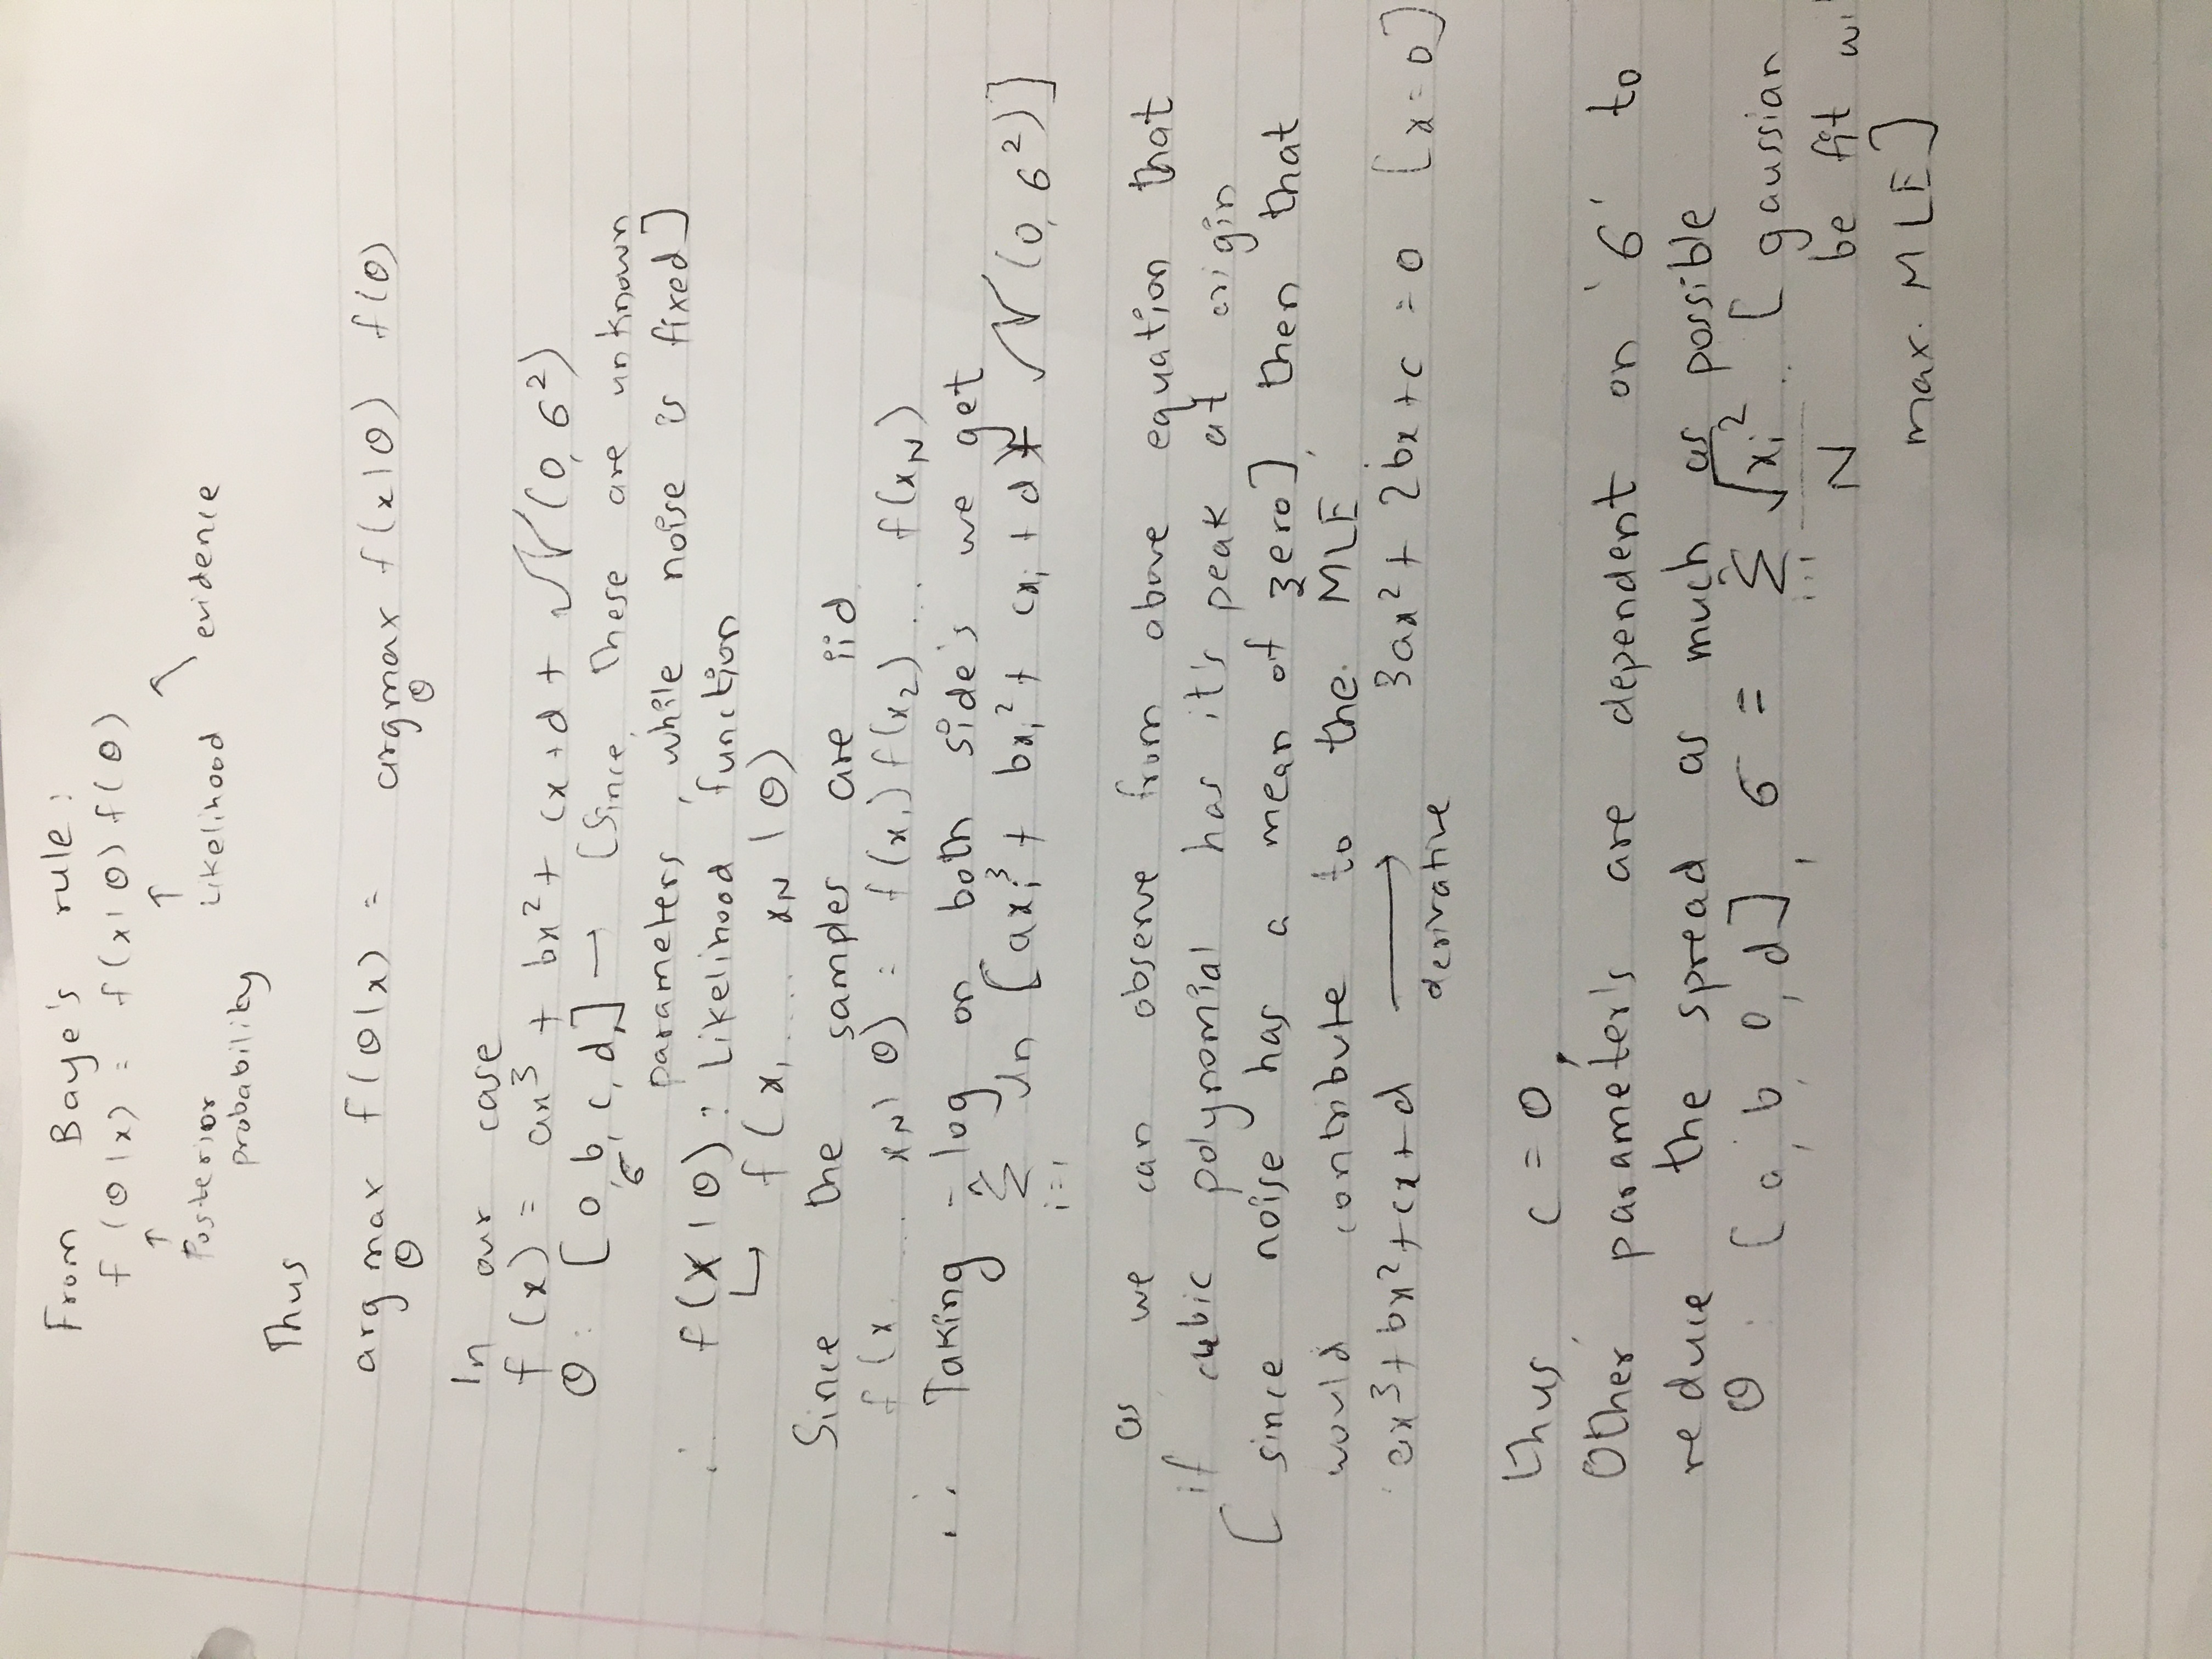 From Baye's rule:
f (θ|x) = f(x|θ) f(θ)
↑ ↑ ↖
Posterior Likelihood evidence
probability
Thus
arg max f(θ|x) = argmax f(x|θ) f(θ)
θ θ
In our case
f(x) = ax³ + bx² + cx + d + N(0, σ²)
θ : [a, b, c, d,] → [Since, these are unknown
σ
parameters, while noise is fixed]
∴ f(X|θ) : Likelihood function
↳ f(x, .... xN | θ)
Since the samples are iid
f(x ... xN| θ) = f(x,) f(x2) ... f(xN)
∴ Taking - log on both side's we get
n
Σ ln [axi³ + bxi² + cxi + d + N(0, σ²)]
i=1
as we can observe from above equation that
if cubic polynomial has it's peak at origin
[since noise has a mean of zero], then that
would contribute to the MLE.
ax³+bx²+cx+d → 3ax²+ 2bx+c = 0 [x=0]
derivative
thus, c = 0,
Other parameter's are dependent on 'σ' to
reduce the spread as much as possible
θ : [a, b, 0, d], σ = Σ √xi² .. [gaussian
i=1 N be fit
max. MLE]